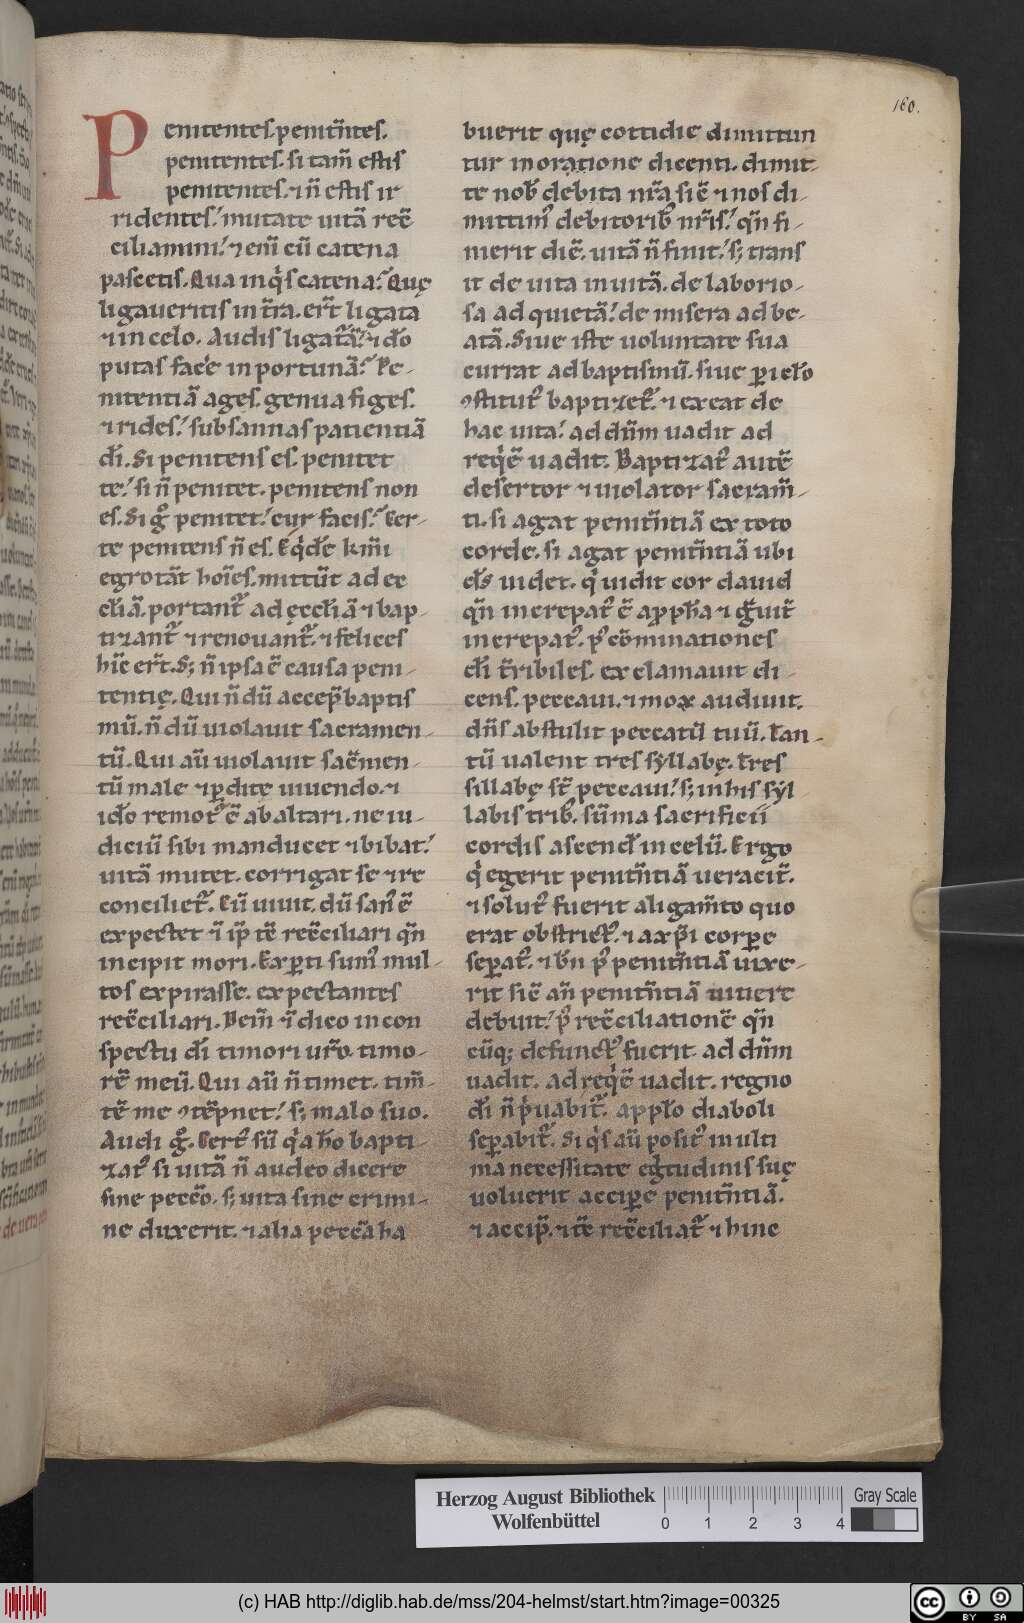 160.
Penitentes. penitñtes.
penitentes. si tam̃ estis
penitentes. ⁊ ñ estis ir
ridentes. mutate uitã recͨ
ciliamini. ⁊ eni᷑ cũ catena
pascetis. Qua inq̇s catena? Quę
ligaueritis in tr̃a. er̃t ligata
⁊ in celo. Audis ligatũrã? ⁊ dm̃
putas facẽ inportunã? Pe-
nitentiã ages. genua figes.
⁊ rides. subsannas patientiã
dĩ. Si penitens es. penitet
te. si ñ penitet. penitens non
es. Si gͦ penitet. cur facis? Cer-
te penitens ñ es.
egrotãt hoĩes. mittũt ad ec
clĩã. portant᷑ ad ęcclĩã ⁊ bap-
tizant᷑ ⁊ renouant᷑. ⁊ felices
hĩc er̃t. S; ñ ipsa ẽ causa peni-
tentię. Qui ñdũ accep̃ baptis
mũ. ñdũ uiolauit sacramen-
tũ. Qui aũ uiolauit sac̃men-
tũ male ⁊ ꝑdite uiuendo. ⁊
iđo remot᷒ ẽ ab altari. ne iu-
diciũ sibi manducet ⁊ bibat.
uitã mutet. corrigat se ⁊ re
conciliet᷑. Cũ uiuit. dũ san᷒ ẽ
expectet ĩ ip̃ tẽ recͨciliari qñ
incipit mori. Exꝑti sum᷒ mul-
tos expirasse. expectantes
recͨciliari. Dem̃ ⁊ dico in con
spectu dĩ timori ur̃o timo-
rẽ meũ. Qui aũ ñ timet. tim̃-
tẽ me ꝯtẽpnet. s; malo suo.
Audi gͦ. Cert᷒ sũ q̇a hõ bapti-
zat᷒ si uitã ñ audeo dicere
sine peccͦo. s; uita sine crimi-
ne duxerit. ⁊ alia peccͣa ha
buerit quę cottidie dimittun
tur in oratione dicenti. dimit-
te nob᷒ debita nr̃a sic̃ ⁊ nos di-
mittim᷒ debitorib᷒ nr̃is. qñ fi-
nierit diẽ. uitã ñ finit. s; trans
it de uita in uitã. de laborio-
sa ad quietã. de misera ad be-
atã. Siue iste uoluntate sua
currat ad baptismũ. siue ꝑicƚo
ꝯstitut᷒ baptizet᷑. ⁊ exeat de
hac uita. ad dñm uadit ad
req̇ẽ uadit. Baptizat᷒ autẽ
desertor ⁊ uiolator sacram̃-
ti. si agat penitñtiã ex toto
corde. si agat penitñtiã ubi
ds̃ uidet. q̇ uidit cor dauid
qñ increpat᷒ ẽ a pp̃ha ⁊ gͣuit̃
increpat᷒. p᷒ cõminationes
dĩ tr̃ibiles. exclamauit di-
cens. peccaui. ⁊ mox audiuit.
dñs abstulit peccatũ tuũ. Tan-
tũ ualent tres syllabę. Tres
sillabę st̃ peccaui. s; in his syl
labis trib᷒. sũma sacrificii
cordis ascend̃ in celũ. Ergo
q̇ egerit penitñtiã ueracit̃.
⁊ solut᷒ fuerit a ligam̃to quo
erat obstrict᷒. ⁊ a xp̃i corꝑe
seꝑat᷒. ⁊ bñ p᷒ penitñtiã uixe-
rit sic̃ añ penitñtiã uiuere
debuit. p᷒ recͨciliationẽ qñ
cũq; defunct᷒ fuerit. ad dñm
uadit. ad req̇ẽ uadit. regno
dĩ ñ p̃uabit᷑. a ppƚo diaboli
seꝑabit᷑. Si q̇s aũ posit᷒ in ulti
ma necessitate ęgͥtudinis suę
uoluerit acciꝑe penitñtiã.
⁊ accip̃. ⁊ tẽ recͨciliat᷑ ⁊ hinc
Herzog August Bibliothek
Wolfenbüttel
0 1 2 3 4
Gray Scale
(c) HAB http://diglib.hab.de/mss/204-helmst/start.htm?image=00325
cc BY SA